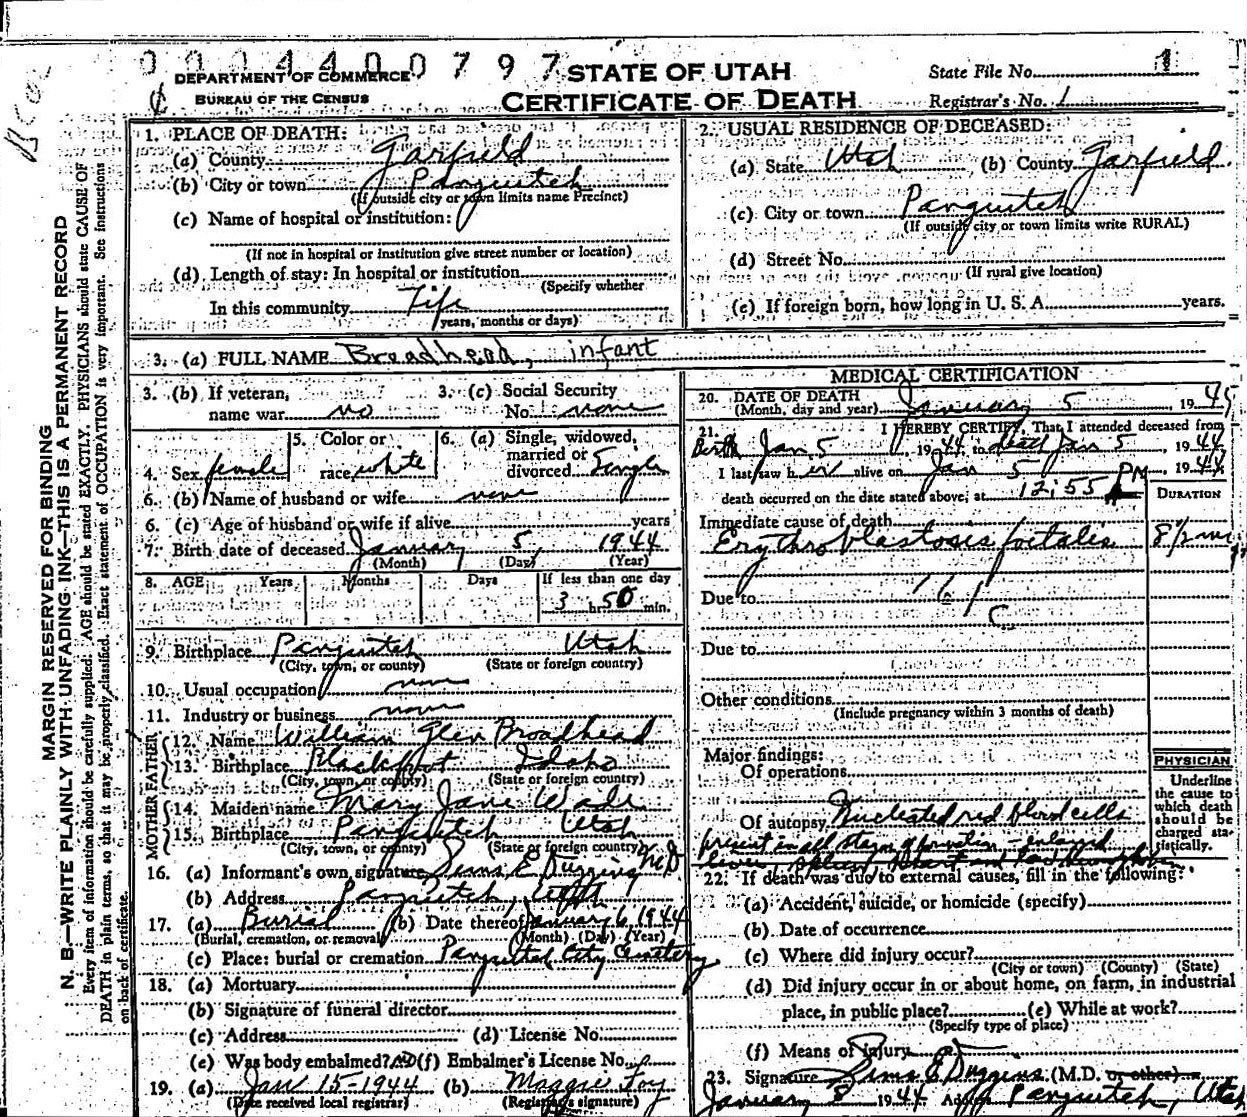 0 0 4 4 0 0 7 9 7
DEPARTMENT OF COMMERCE
BUREAU OF THE CENSUS
STATE OF UTAH
CERTIFICATE OF DEATH
State File No. 1
Registrar's No. 1
MARGIN RESERVED FOR BINDING
N. B.—WRITE PLAINLY WITH UNFADING INK—THIS IS A PERMANENT RECORD
Every item of information should be carefully supplied. AGE should be stated EXACTLY. PHYSICIANS should state CAUSE OF
DEATH in plain terms, so that it may be properly classified. Exact statement of OCCUPATION is very important. See instructions
on back of certificate.
1. PLACE OF DEATH:
(a) County Garfield
(b) City or town Panguitch
(If outside city or town limits name Precinct)
(c) Name of hospital or institution:
(If not in hospital or institution give street number or location)
(d) Length of stay: In hospital or institution
(Specify whether
In this community Life
years, months or days)
2. USUAL RESIDENCE OF DECEASED:
(a) State Utah (b) County Garfield
(c) City or town Panguitch
(If outside city or town limits write RURAL)
(d) Street No.
(If rural give location)
(e) If foreign born, how long in U. S. A. years.
3. (a) FULL NAME Broadhead, infant
3. (b) If veteran, name war no
3. (c) Social Security No. none
4. Sex female
5. Color or race white
6. (a) Single, widowed, married or divorced Single
6. (b) Name of husband or wife none
6. (c) Age of husband or wife if alive years
7. Birth date of deceased January 5, 1944
(Month) (Day) (Year)
8. AGE Years Months Days If less than one day
3 hr. 50 min.
9. Birthplace Panguitch Utah
(City, town, or county) (State or foreign country)
10. Usual occupation none
11. Industry or business none
FATHER
12. Name William Glen Broadhead
13. Birthplace Blackfoot Idaho
(City, town, or county) (State or foreign country)
MOTHER
14. Maiden name Mary Jane Wade
15. Birthplace Panguitch Utah
(City, town, or county) (State or foreign country)
16. (a) Informant's own signature Sims E Duggins MD
(b) Address Panguitch, Utah
17. (a) Burial (b) Date thereof January 6, 1944
(Burial, cremation, or removal) (Month) (Day) (Year)
(c) Place: burial or cremation Panguitch City Cemetery
18. (a) Mortuary
(b) Signature of funeral director
(c) Address (d) License No.
(e) Was body embalmed? no (f) Embalmer's License No.
19. (a) Jan 15-1944 (b) Maggie Foy
(Date received local registrar) (Registrar's signature)
MEDICAL CERTIFICATION
20. DATE OF DEATH
(Month, day and year) January 5, 1944
21. I HEREBY CERTIFY, That I attended deceased from
Birth Jan 5, 1944 to death Jan 5, 1944
I last saw her alive on Jan 5 PM, 1944
death occurred on the date stated above, at 12:55
DURATION
Immediate cause of death
Erythroblastosis foetalis 8½ mo
Due to 161
C
Due to
Other conditions
(Include pregnancy within 3 months of death)
Major findings:
Of operations
Of autopsy Nucleated red blood cells
present in all
liver, spleen, heart and
PHYSICIAN
Underline
the cause to
which death
should be
charged sta-
tistically.
22. If death was due to external causes, fill in the following:
(a) Accident, suicide, or homicide (specify)
(b) Date of occurrence
(c) Where did injury occur?
(City or town) (County) (State)
(d) Did injury occur in or about home, on farm, in industrial
place, in public place? (e) While at work?
(Specify type of place)
(f) Means of injury
23. Signature Sims E Duggins (M.D. or other)
January 8 1944 Address Panguitch, Utah